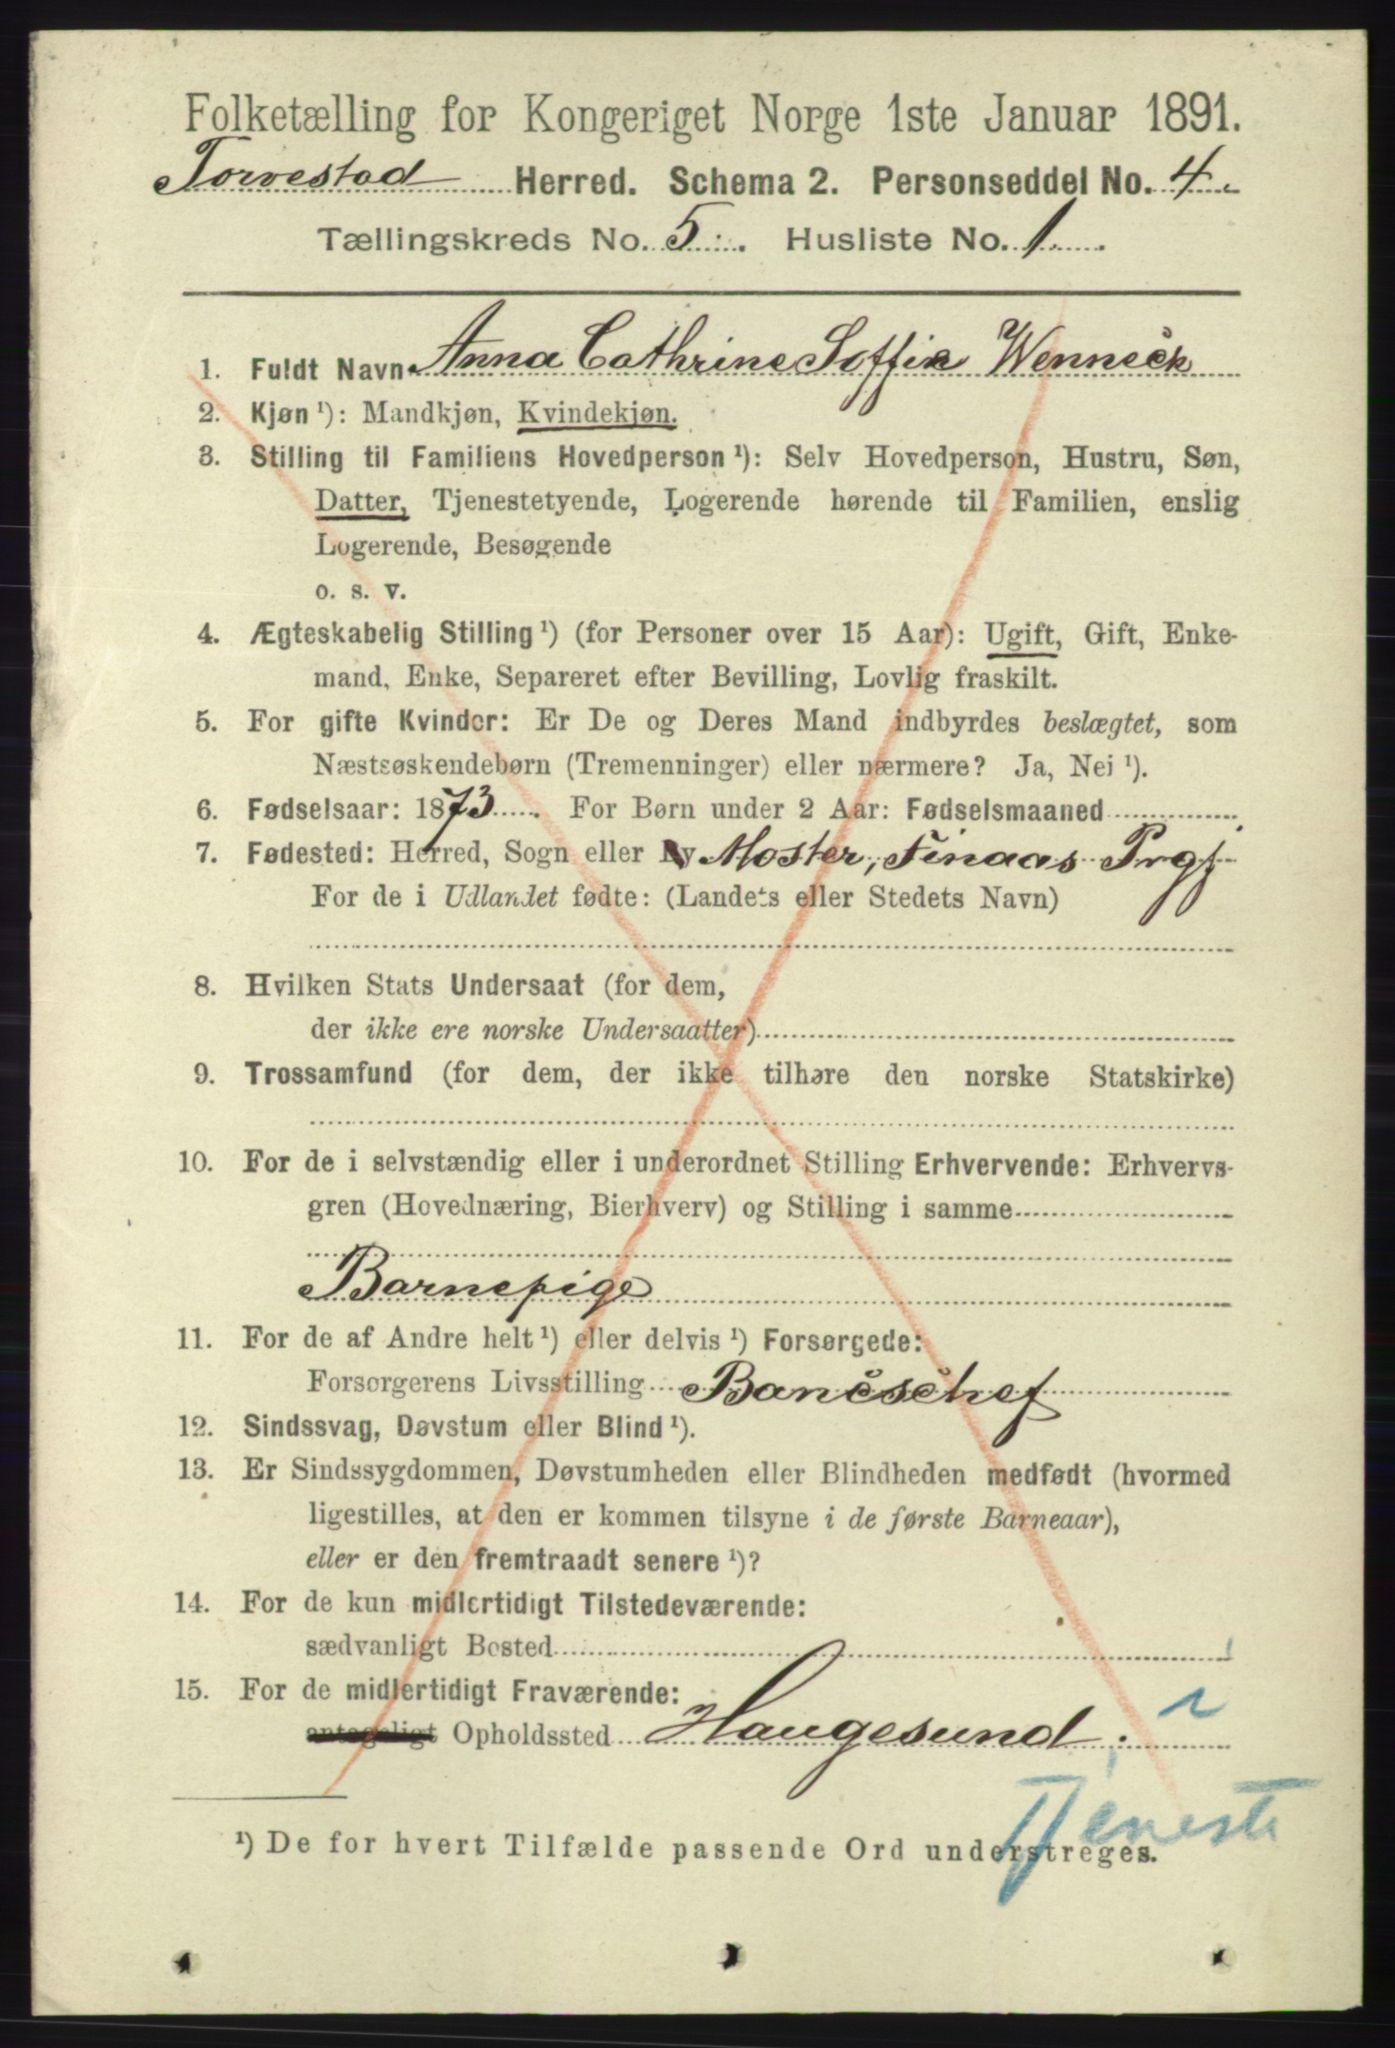 Folketælling for Kongeriget Norge 1ste Januar 1891.
Torvestad Herred. Schema 2. Personseddel No. 4.
Tællingskreds No. 5. Husliste No. 1
1. Fuldt Navn Anna Cathrine Soffie Wenneck
2. Kjøn ¹): Mandkjøn, Kvindekjøn.
3. Stilling til Familiens Hovedperson ¹): Selv Hovedperson, Hustru, Søn,
Datter, Tjenestetyende, Logerende hørende til Familien, enslig
Logerende, Besøgende
o. s. v.
4. Ægteskabelig Stilling ¹) (for Personer over 15 Aar): Ugift, Gift, Enke-
mand, Enke, Separeret efter Bevilling, Lovlig fraskilt.
5. For gifte Kvinder: Er De og Deres Mand indbyrdes beslægtet, som
Næstsøskendebørn (Tremenninger) eller nærmere? Ja, Nei ¹).
6. Fødselsaar: 1873. For Børn under 2 Aar: Fødselsmaaned
7. Fødested: Herred, Sogn eller By Moster, Finaas Prgj
For de i Udlandet fødte: (Landets eller Stedets Navn)
8. Hvilken Stats Undersaat (for dem,
der ikke ere norske Undersaatter)
9. Trossamfund (for dem, der ikke tilhøre den norske Statskirke)
10. For de i selvstændig eller i underordnet Stilling Erhvervende: Erhvervs-
gren (Hovednæring, Bierhverv) og Stilling i samme
Barnepige
11. For de af Andre helt ¹) eller delvis ¹) Forsørgede:
Forsørgerens Livsstilling Bancschef
12. Sindssvag, Døvstum eller Blind ¹).
13. Er Sindssygdommen, Døvstumheden eller Blindheden medfødt (hvormed
ligestilles, at den er kommen tilsyne i de første Barneaar),
eller er den fremtraadt senere ¹)?
14. For de kun midlertidigt Tilstedeværende:
sædvanligt Bosted
15. For de midlertidigt Fraværende:
antageligt Opholdssted Haugesund.
i
Tjeneste
¹) De for hvert Tilfælde passende Ord understreges.